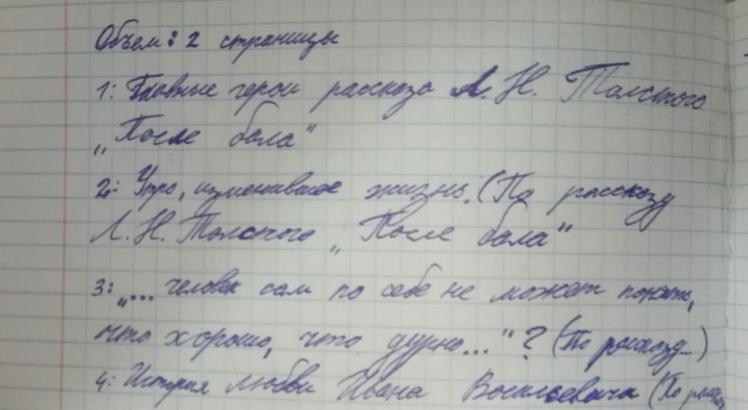 Объем: 2 страницы
1: Главные герои рассказа Л. Н. Толстого
„После бала"
2: Утро, изменившее жизнь. (По рассказу
Л. Н. Толстого „После бала"
3: „... человек сам по себе не может понять,
что хорошо, что дурно..."? (По рассказу...)
4: История любви Ивана Васильевича (По